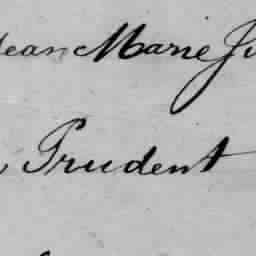 Jean Marie
Prudent